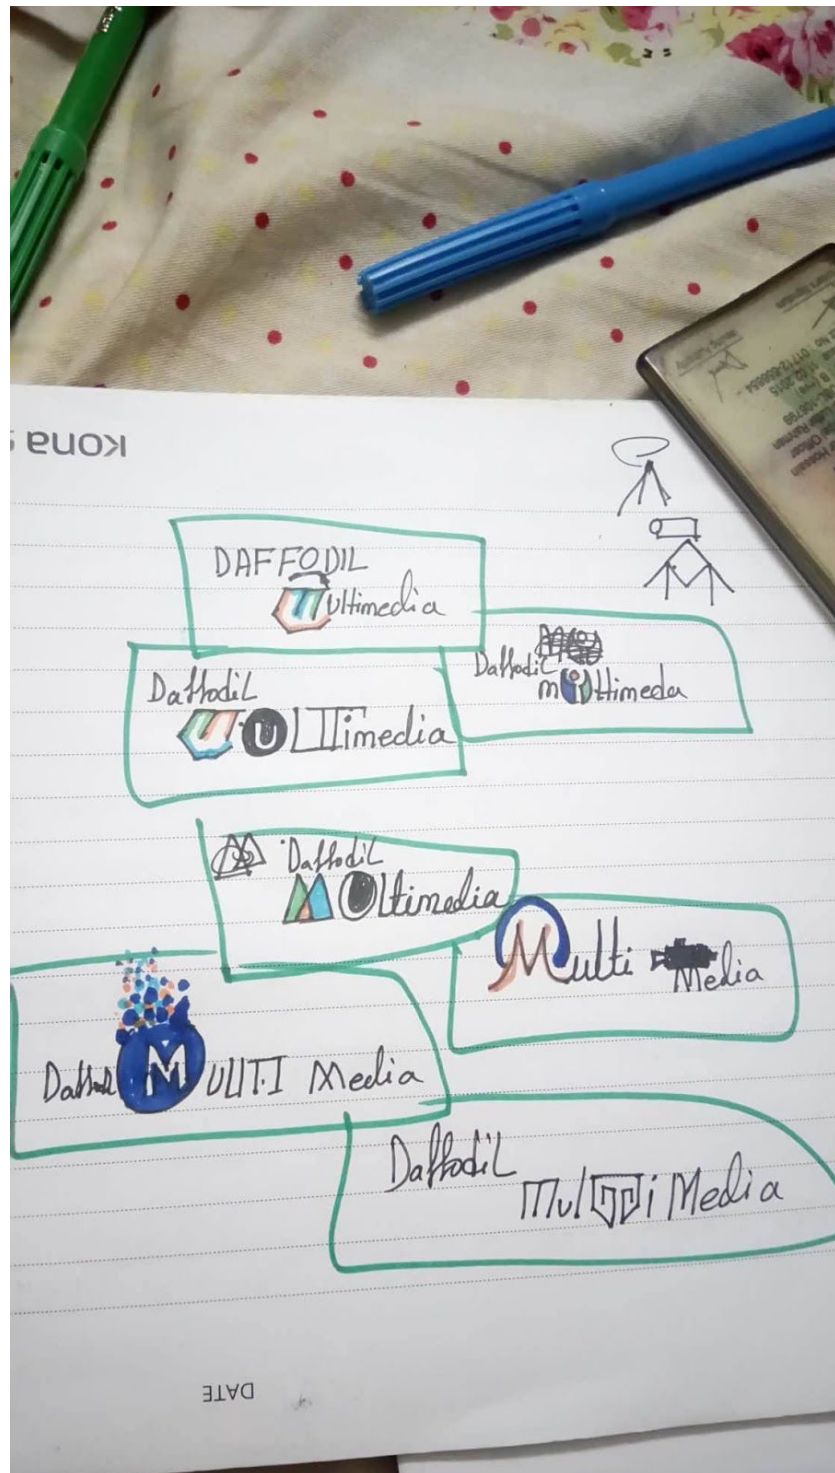 Kona
DAFFODIL
Multimedia
Daffodil
mUltimeda
Daffodil
MULTimedia
Daffodil
MUltimedia
Multi Media
Daffodil MULTI Media
Daffodil
MulTi Media
DATE